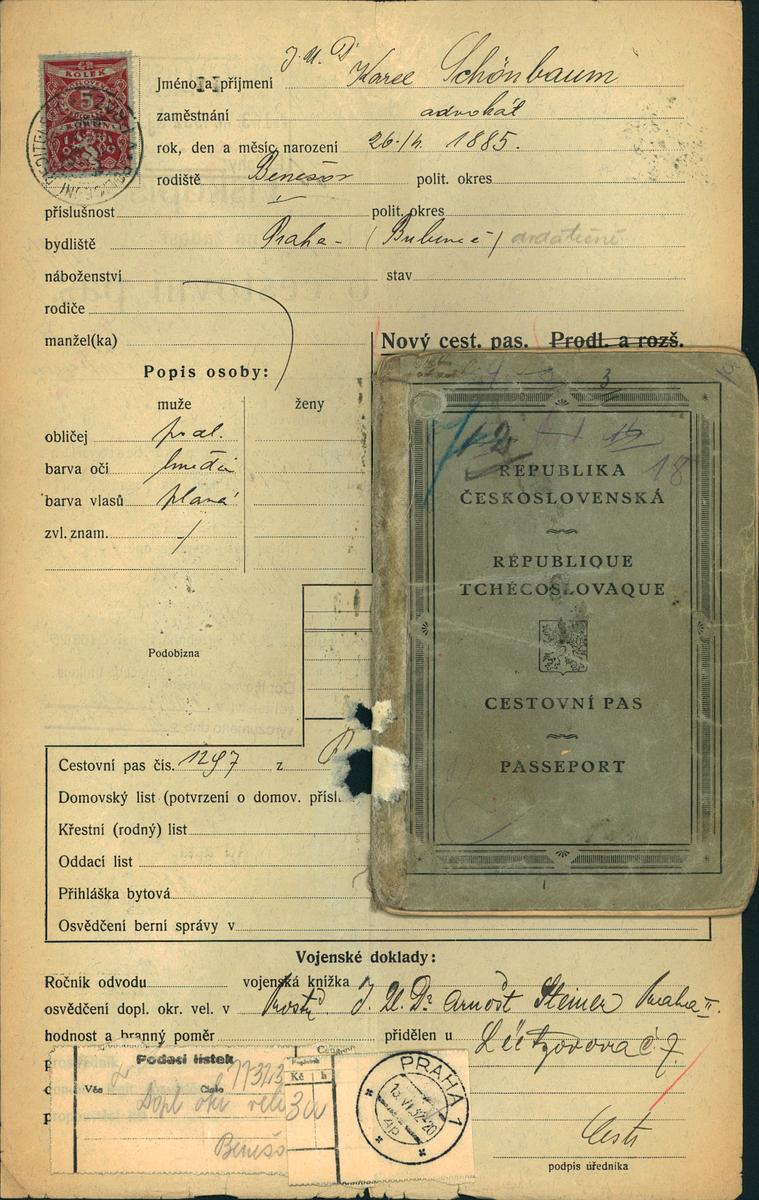 J. U. Dr
Jméno a příjmení Karel Schönbaum
zaměstnání advokát
rok, den a měsíc narození 26./4. 1885.
rodiště Benešov polit. okres
příslušnost polit. okres
bydliště Praha - (Bubeneč)
náboženství stav
rodiče
manžel(ka)
Nový cest. pas. Prodl. a rozš.
Popis osoby:
muže ženy
obličej podl.
barva očí hnědá
barva vlasů plavá
zvl. znam. /
Podobizna
Cestovní pas čís. 1297 z P
Domovský list (potvrzení o domov. přísl.
Křestní (rodný) list
Oddací list
Přihláška bytová
Osvědčení berní správy v
Vojenské doklady:
Ročník odvodu vojenská knížka
osvědčení dopl. okr. vel. v J. U. Dr Arnošt Steiner Praha II.
hodnost a branný poměr přidělen u Lützovova č. 7.
podpis úředníka
KOLEK
5
REPUBLIKA
ČESKOSLOVENSKÁ
RÉPUBLIQUE
TCHÉCOSLOVAQUE
CESTOVNÍ PAS
PASSEPORT
3
12
18
Podací lístek
Kč h
Věc Číslo 77323
Dopl okr vel 30
Benešo
PRAHA 1
15.VI.32-20